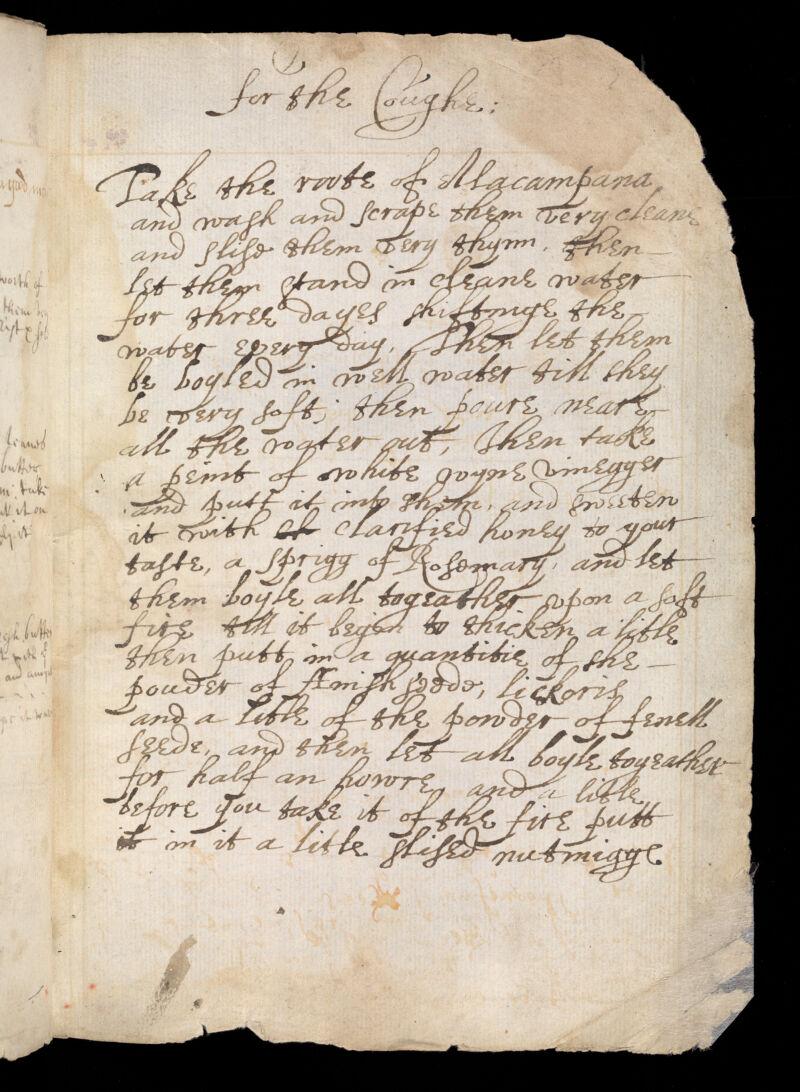 for the Coughe:
Take the roote of Alacampana
and wash and scrape them very cleane
and slise them very thynn, then
let them stand in cleane water
for three dayes shiftinge the
water every day, Then let them
be boyled in well water till they
be very soft; then poure neare
all the water out, Then take
a peint of white wyne vinegger
and putt it into them, and sweeten
it with cl clarified honey to your
taste, a sprigg of Rosemary, and let
them boyle all togeather upon a soft
fire till it began to thicken a litle
then putt in a quantitie of the
pouder of Anish seede, lickoris
and a litle of the powder of fenell
seede, and then let all boyle togeather
for half an howre and a litle
before you take it of the fire putt
it in it a litle slised nutmigge
worth of
butter